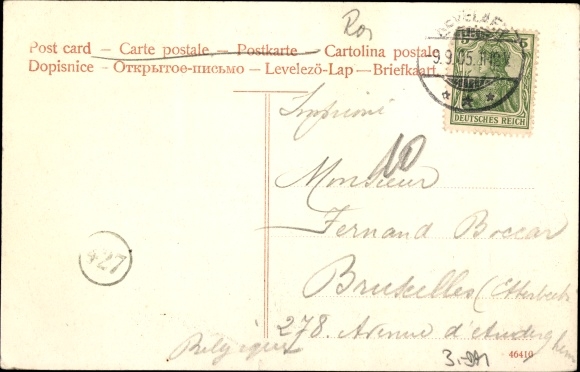 Ror
Post card — Carte postale — Postkarte — Cartolina postale
Dopisnice — Открытое-письмо — Levelező-Lap — Briefkaart
KEVELAER
9.9.05.
5 5
DEUTSCHES REICH
Imprimé
10
Monsieur
Fernand Boccar
Bruxelles (Etterbeek
278. Avenue d'Auderghem
Belgique
424
3.-
46410